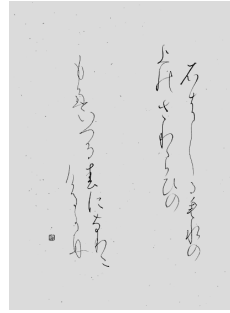 石はしる垂水の
上のさわらひの
もえいつる春になりに
けるかも